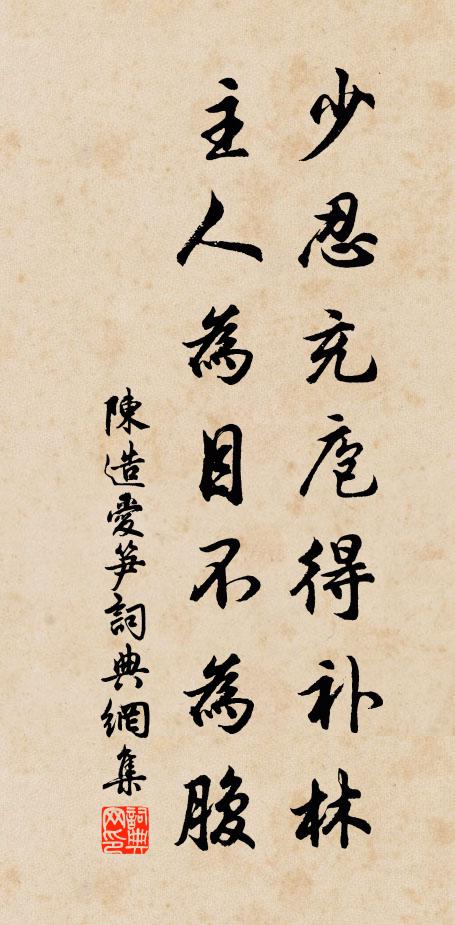 少忍充庖得补林
主人為目不為腹
陳造愛笋詞典網集
詞典网印